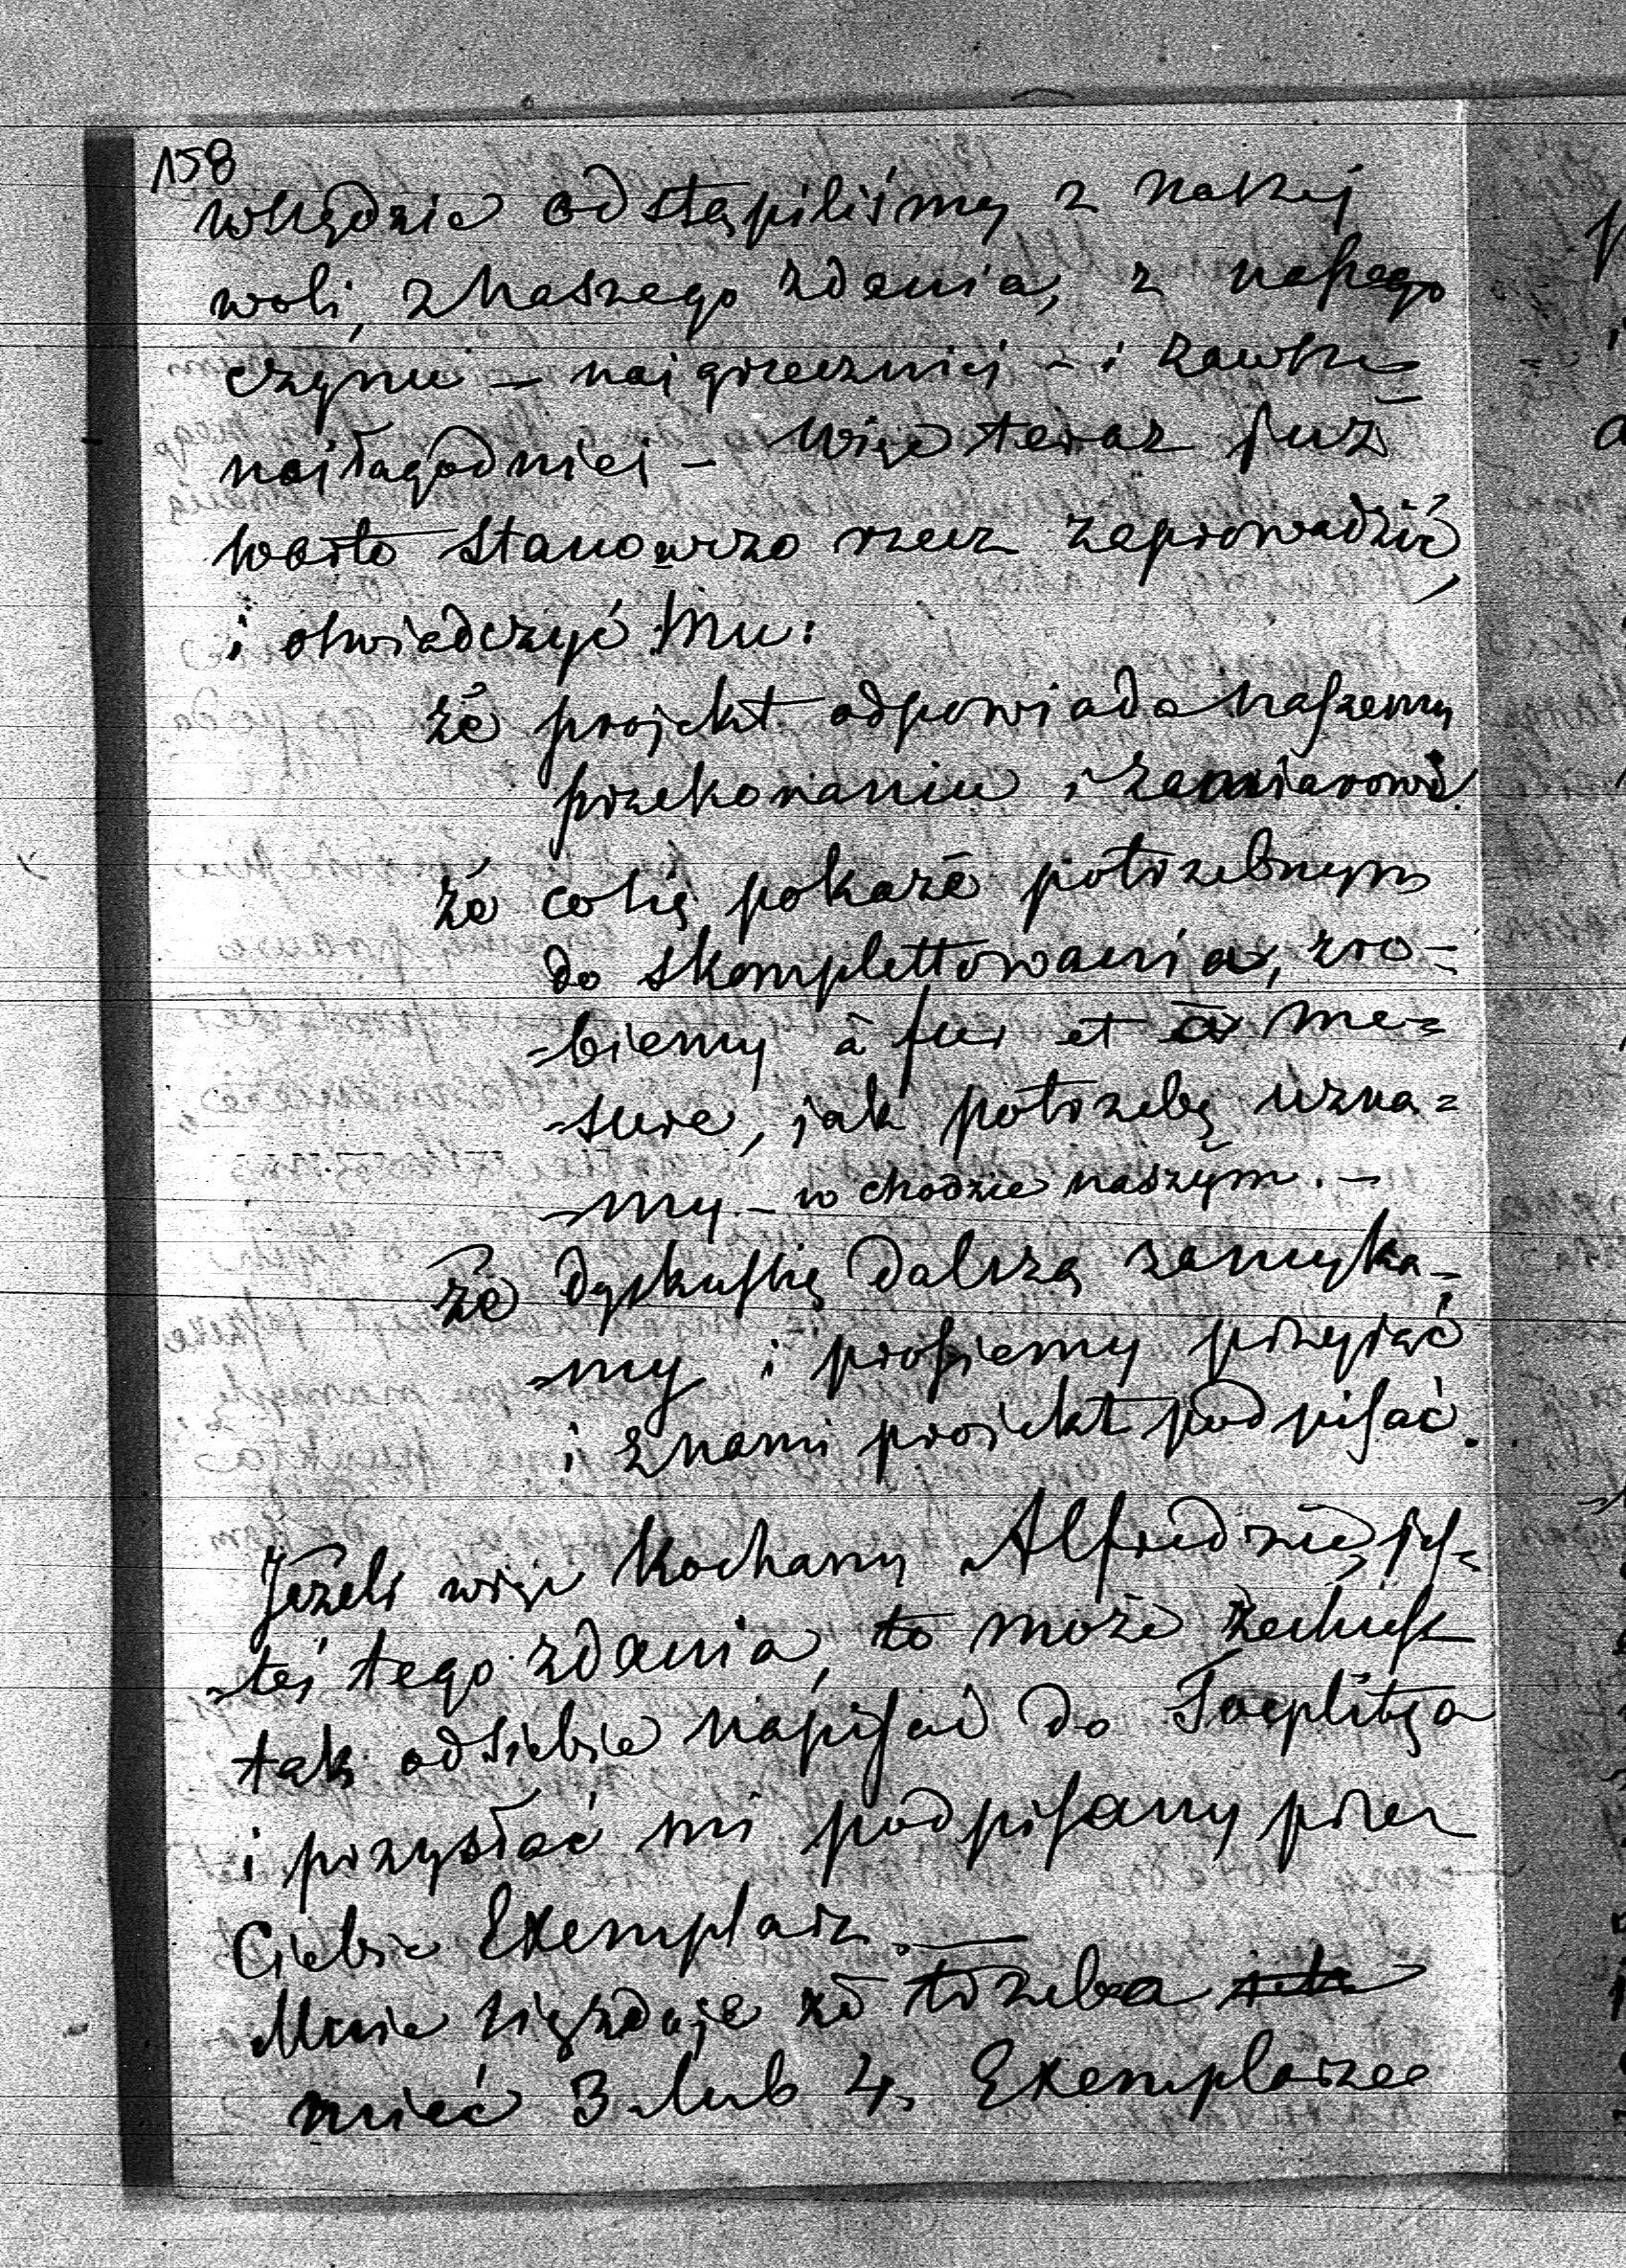 158
wszędzie odstąpiliśmy z naszej
woli, z naszego zdania, z naszego
czynu — najgrzeczniej — i zawsze
najłagodniej — Więc teraz już
warto stanowczo rzecz zaprowadzić,
i oświadczyć Mu:
że projekt odpowiada naszemu
przekonaniu i zamiarowi.
że co się pokaże potrzebnym
do skomplettowania, zro-
-biemy à fur et à me-
-sure, jak potrzebę uzna-
-my — w chodzie naszym. —
że dyskussię dalszą zamyka-
-my i prosiemy przyjąć
i z nami projekt podpisać.
Jeżeli więc kochany Alfredzie, jes-
-teś tego zdania, to może zechcesz
tak od siebie napisać do Toeplitza
i przysłać mi podpisany przez
Ciebie Exemplarz. —
Mnie się zdaje że trzeba
mieć 3 lub 4. Exemplarze